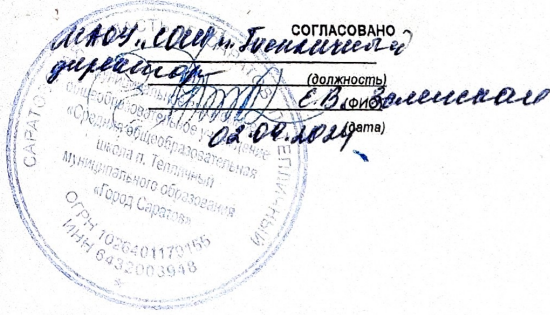 СОГЛАСОВАНО
МАОУ "СОШ п. Тепличный
директор
(должность)
Е.В. Зеленская
(ФИО)
(дата)
общеобразовательное учреждение
«Средняя общеобразовательная
школа п. Тепличный
муниципального образования
«Город Саратов»
ОГРН 1026401179155
ИНН 6432003948